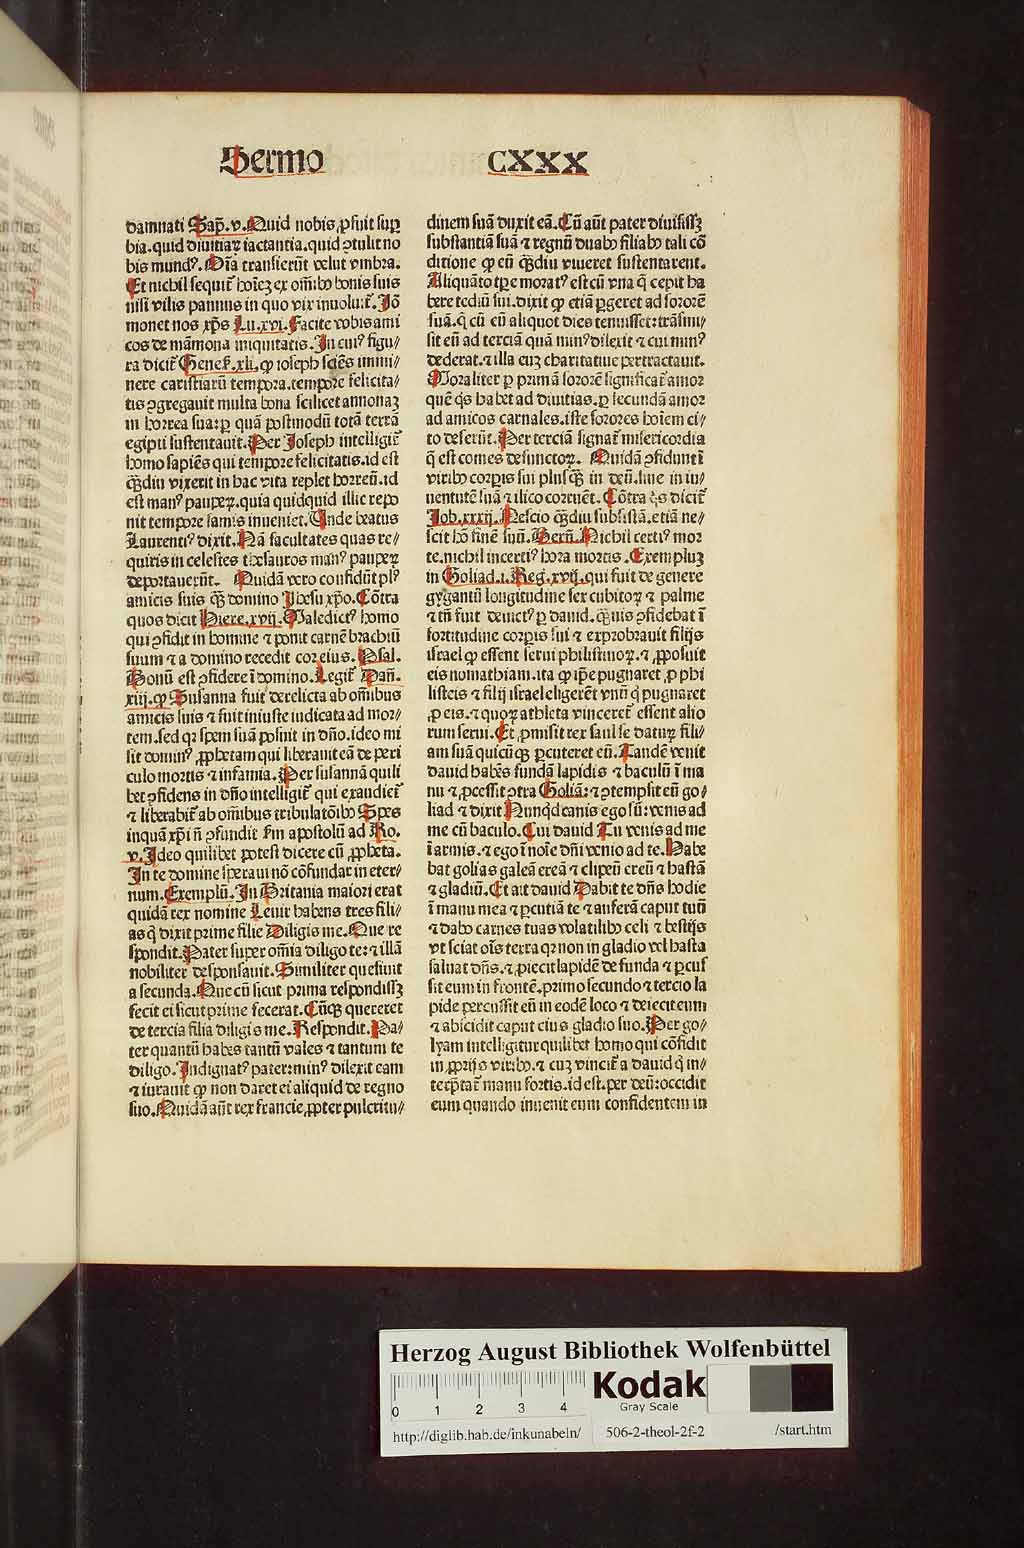 Sermo CXXX
damnati Sap̄. v. Quid nobis ꝓfuit suꝑ
bia. quid diuitiaꝝ iactantia. quid ꝯtulit no
bis mundꝰ. Oīa transierūt velut vmbra.
Et nichil sequit᷑ hoīeꝫ ex om̄ibꝰ bonis suis
nisi vilis pannus in quo vix inuoluit᷑. Iō
monet nos xp̄s Lu. xvi. Facite vobis ami
cos de māmona iniquitatis. In cuiꝰ figu⸗
ra dicit᷑ Genes̄. xli. ꝙ ioseph sciēs immi⸗
nere caristiarū tempora. tempore felicita⸗
tis ꝯgregauit multa bona scilicet annonaꝫ
in horrea sua: ꝑ quā postmodū totā terrā
egipti sustentauit. Per Joseph intelligit᷑
homo sapiēs qui tempore felicitatis. id est
ꝙ̄diu vixerit in hac vita replet horreū. id
est manꝰ pauꝑeꝝ. quia quidquid illic repo
nit tempore famis inueniet. Unde beatus
Laurentiꝰ dixit. Nā facultates quas re⸗
quiris in celestes thesauros manꝰ pauꝑeꝝ
deportauerūt. Quidā vero confidūt plꝰ
amicis suis ꝙ̄ domino Jhesu xp̄o. Cōtra
quos dicit Hiere. xvij. Maledictꝰ homo
qui ꝯfidit in homine ⁊ ponit carnē brachiū
suum ⁊ a domino recedit cor eius. Psal.
Bonū est ꝯfidere ī domino. Legit᷑ Dan̄.
xiij. ꝙ Susanna fuit derelicta ab om̄ibus
amicis suis ⁊ fuit iniuste iudicata ad mor⸗
tem. sed qꝛ spem suā posuit in dn̄o. ideo mi
sit dominꝰ ꝓphetam qui liberauit eā de peri
culo mortis ⁊ infamia. Per susannā quili
bet ꝯfidens in dn̄o intelligit᷑ qui exaudiet᷑
⁊ liberabit᷑ ab om̄ibus tribulatōibꝰ Spes
inquā xp̄i n̄ ꝯfundit s̄m apostolū ad Ro.
v. Ideo quilibet potest dicere cū ꝓpheta.
In te domine speraui nō cōfundar in eter⸗
num. Exemplū. In Britania maiori erat
quidā rex nomine Leuir habens tres fili⸗
as q̄ dixit prime filie Diligis me. Que re
spondit. Pater super om̄ia diligo te: ⁊ illā
nobiliter desponsauit. Similiter quesiuit
a secunda. Que cū sicut prima respondissꝫ
fecit ei sicut prime fecerat. Cūqꝫ quereret
de tercia filia diligis me. Respondit. Pa⸗
ter quantū habes tantū vales ⁊ tantum te
diligo. Indignatꝰ pater: minꝰ dilexit eam
⁊ iurauit ꝙ non daret ei aliquid de regno
suo. Quidā aūt rex francie ꝓpter pulcritu⸗
dinem suā duxit eā. Cū aūt pater diuisissꝫ
substantiā suā ⁊ regnū duabꝰ filiabꝰ tali cō
ditione ꝙ eū ꝙ̄diu viueret sustentarent.
Aliquāto tꝑe moratꝰ est cū vna q̄ cepit ha
bere tediū sui. dixit ꝙ etiā ꝑgeret ad sororē
suā. q̄ cū eū aliquot dies tenuisset: trāsmi⸗
sit eū ad terciā quā minꝰ dilexit ⁊ cui minꝰ
dederat. ⁊ illa euꝫ charitatiue pertractauit.
Moraliter ꝑ primā sororē significat᷑ amor
quē q̄s habet ad diuitias. ꝑ secundā amor
ad amicos carnales. iste sorores hoīem ci⸗
to deserūt. Per terciā signat᷑ misericordia
q̄ est comes defunctoꝝ. Quidā ꝯfidunt ī
viribꝰ corꝑis sui plusꝙ̄ in deū. siue in iu⸗
uentutē suā ⁊ ilico corruēt. Cōtra q̄s dicit᷑
Job. xxxij. Nescio ꝙ̄diu subsistā. etiā ne⸗
scit hō finē suū. Bern̄. Nichil certiꝰ mor
te. nichil incertiꝰ hora mortis. Exempluꝫ
in Goliad. i. Reg. xvij. qui fuit de genere
gygantū longitudine sex cubitoꝝ ⁊ palme
⁊ tn̄ fuit deuictꝰ ꝑ dauid. ꝙ̄uis ꝯfidebat ī
fortitudine corꝑis sui ⁊ exprobrauit filijs
israel ꝙ essent serui philistinoꝝ. ⁊ ꝓposuit
eis nomathiam. ita ꝙ ip̄e pugnaret ꝓ phi
listeis ⁊ filij israel eligerēt vnū q̄ pugnaret
ꝓ eis. ⁊ quoꝝ athleta vinceret᷑ essent alio
rum serui. Et ꝓmisit rex saul se daturꝫ fili⸗
am suā quicūqꝫ ꝑcuteret eū. Tandē venit
dauid habēs fundā lapidis ⁊ baculū ī ma
nu ⁊ ꝓcessit ꝯtra Goliā: ⁊ ꝯtempsit eū go⸗
liad ⁊ dixit Nunqͥd canis ego sū: venis ad
me cū baculo. Cui dauid Tu venis ad me
ī armis. ⁊ ego ī noīe dn̄i venio ad te. Habe
bat golias galeā ereā ⁊ clipeū ereū ⁊ hastā
⁊ gladiū. Et ait dauid Dabit te dn̄s hodie
ī manu mea ⁊ ꝑcutiā te ⁊ auferā caput tuū
⁊ dabo carnes tuas volatilibꝰ celi ⁊ bestijs
vt sciat oīs terra qꝛ non in gladio vel hasta
saluat dn̄s. ⁊ ꝓiecit lapidē de funda ⁊ ꝑcus
sit eum in frontē. primo secundo ⁊ tercio la
pide percussit eū in eodē loco ⁊ deiecit eum
⁊ abscidit caput eius gladio suo. Per go⸗
lyam intelligitur quilibet homo qui cōfidit
in ꝓprijs viribꝰ. ⁊ cuꝫ vincit᷑ a dauid q̇ in⸗
terp̄tat᷑ manu fortis. id est. per deū: occidit
eum quando inuenit eum confidentem in
Herzog August Bibliothek Wolfenbüttel
0 1 2 3 4
Kodak
Gray Scale
http://diglib.hab.de/inkunabeln/ 506-2-theol-2f-2 /start.htm